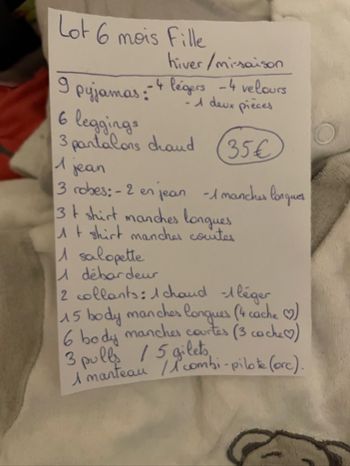 Lot 6 mois Fille
hiver/mi-saison
9 pyjamas: - 4 légers - 4 velours
- 1 deux pièces
6 leggings
3 pantalons chaud
35€
1 jean
3 robes: - 2 en jean - 1 manches longues
3 t shirt manches longues
1 t shirt manches courtes
1 salopette
1 débardeur
2 collants: 1 chaud - 1 léger
15 body manches longues (4 cache ♡)
6 body manches courtes (3 cache ♡)
3 pulls / 5 gilets
1 manteau / 1 combi-pilote (orc).